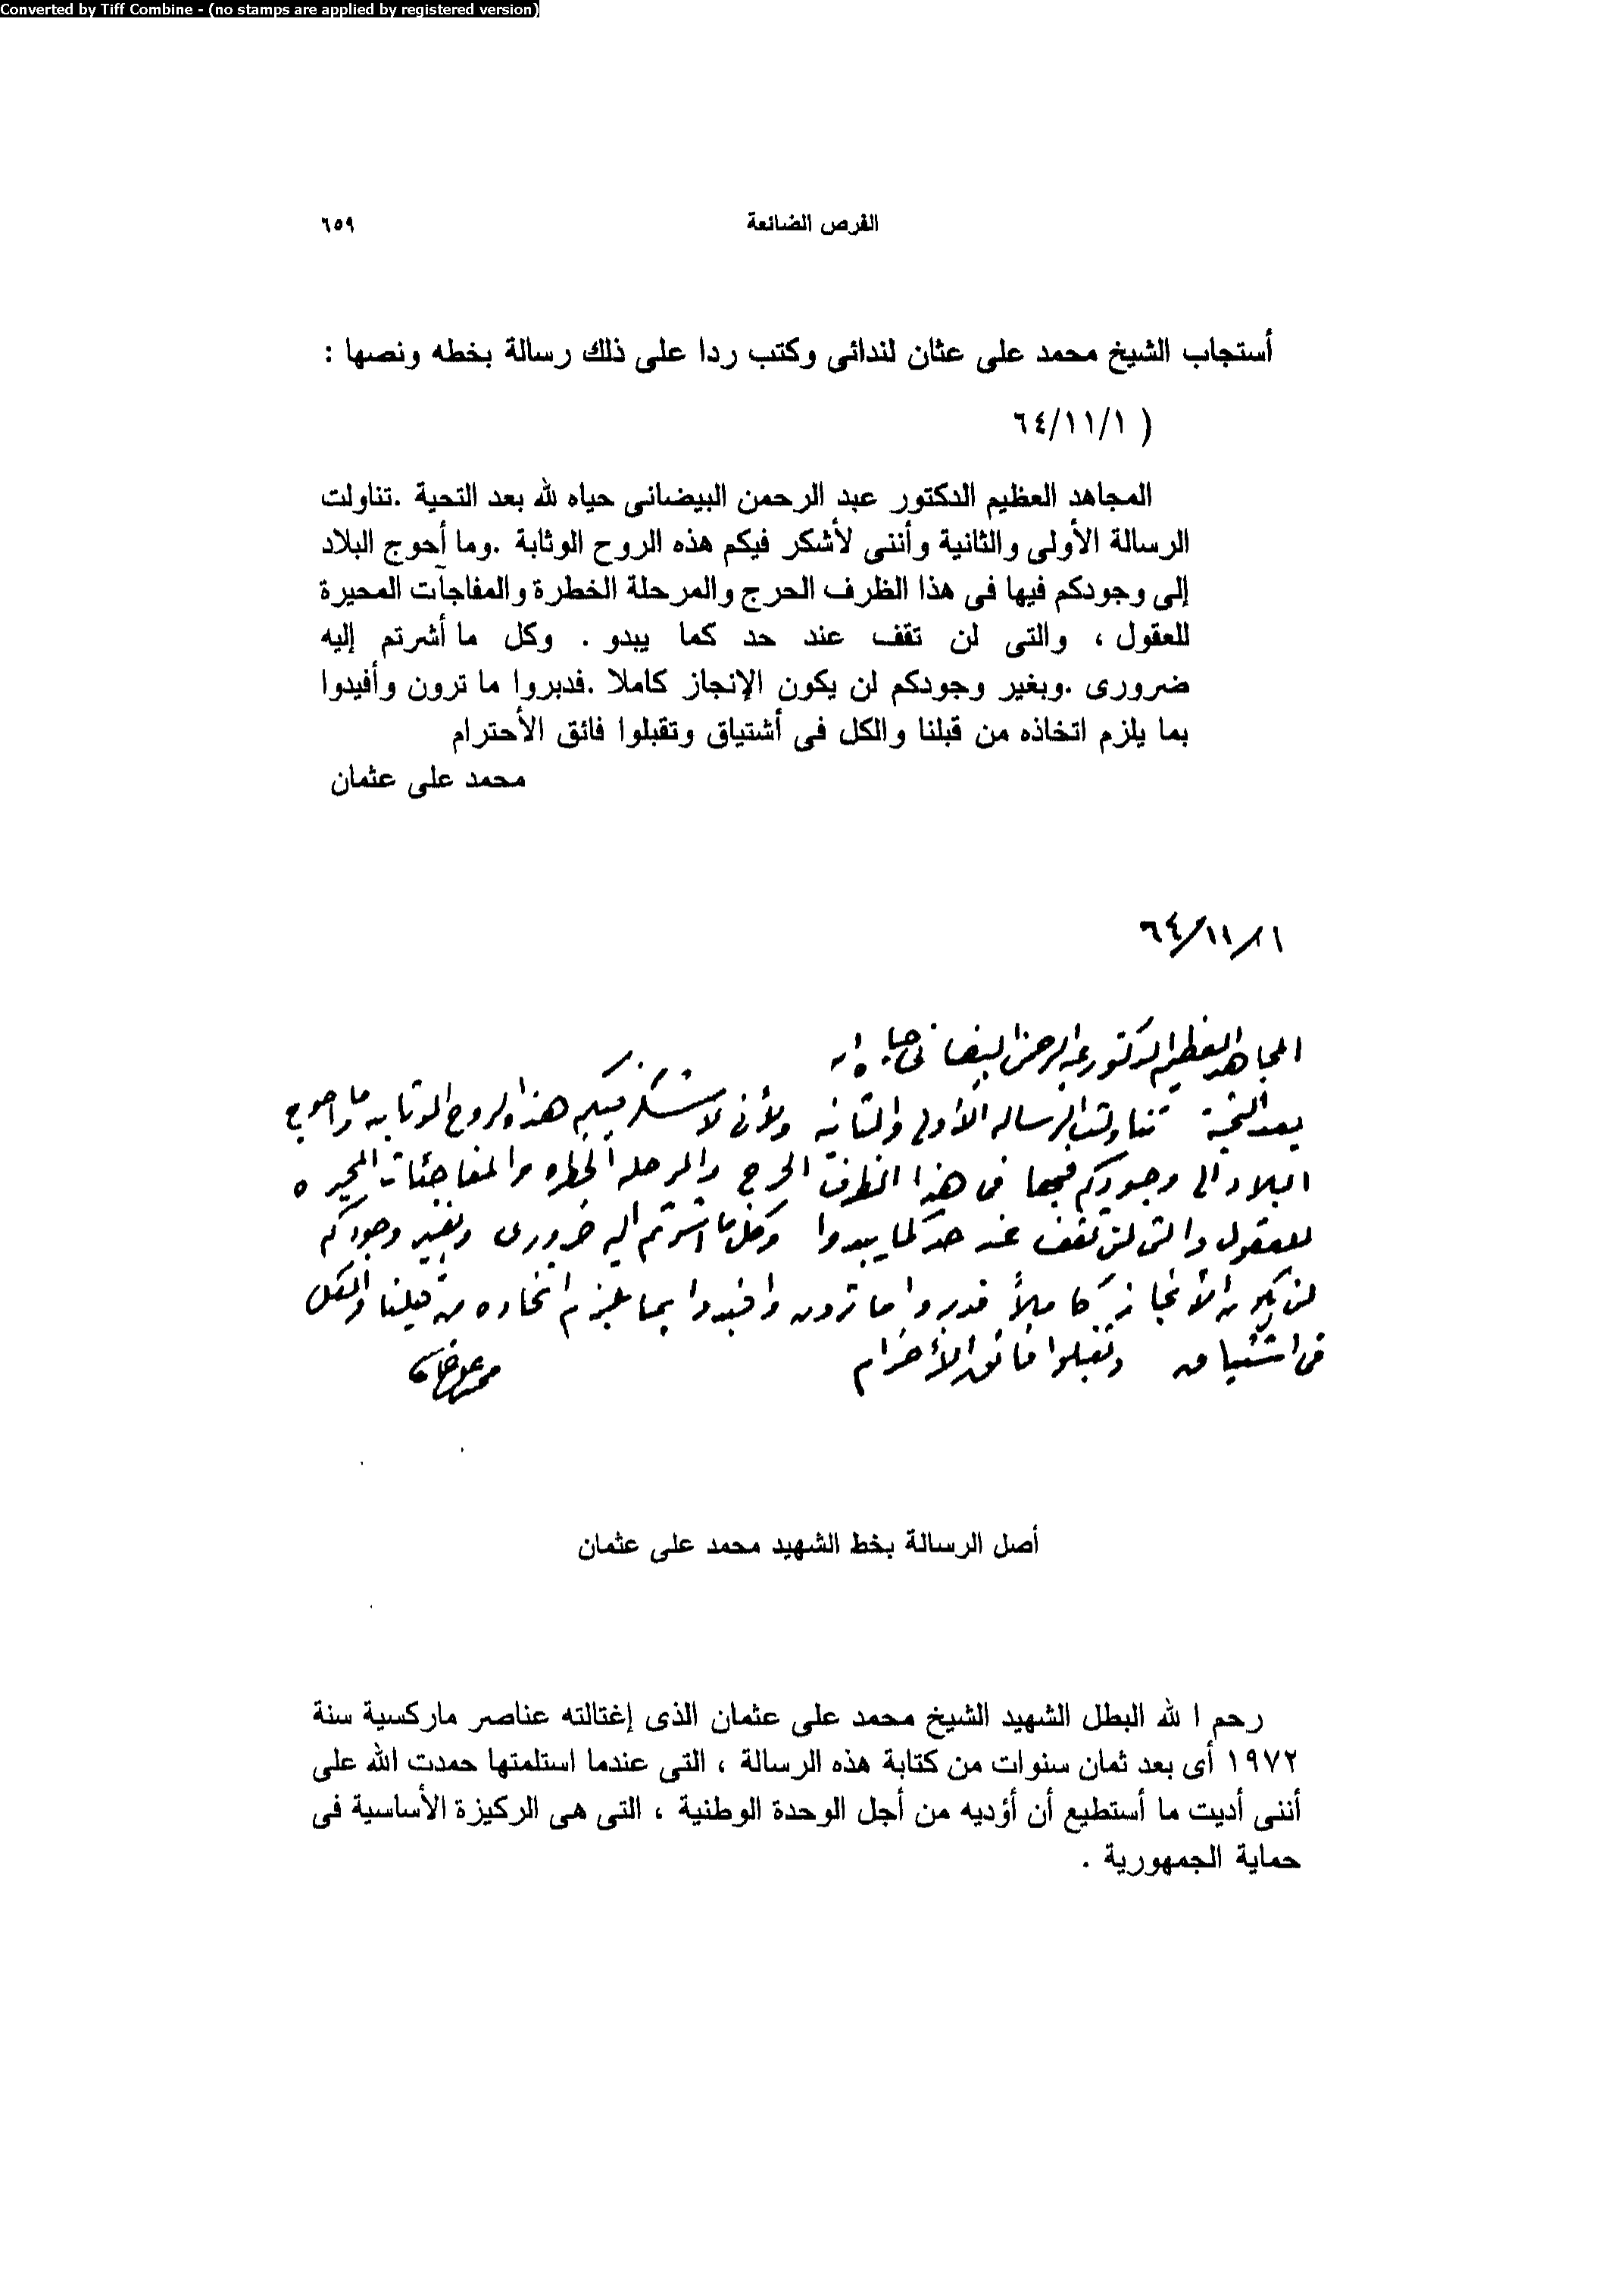 Converted by Tiff Combine - (no stamps are applied by registered version)
الفرص الضائعة ٦٥٩
أستجاب الشيخ محمد على عثان لندائى وكتب ردا على ذلك رسالة بخطه ونصها :
( ٦٤/١١/١
المجاهد العظيم الدكتور عبد الرحمن البيضانى حياه لله بعد التحية .تناولت
الرسالة الأولى والثانية وأننى لأشكر فيكم هذه الروح الوثابة .وما أحوج البلاد
إلى وجودكم فيها فى هذا الظرف الحرج والمرحلة الخطرة والمفاجآت المحيرة
للعقول ، والتى لن تقف عند حد كما يبدو . وكل ما أشرتم إليه
ضرورى .وبغير وجودكم لن يكون الإنجاز كاملا .فدبروا ما ترون وأفيدوا
بما يلزم اتخاذه من قبلنا والكل فى أشتياق وتقبلوا فائق الأحترام
محمد على عثمان
٦٤/١١/١
المجاهد العظيم الدكتور عبد الرحمن البيضانى حياه الله
بعد التحية تناولت الرساله الأولى والثانيه ولأنى لاشكر فيكم هذه الروح الوثابه وما احوج
البلاد الى وجودكم فيها فى هذا الظرف الحرج والمرحله الخطره والمفاجئات المحيره
للعقول والتى لن تقف عند حد كما يبدوا وكل ما اشرتم اليه ضرورى وبغير وجودكم
لن يكون الأنجاز كاملاً فدبروا ما ترون وافيدوا بما يلزم اتخاذه من قبلنا والكل
فى اشتياق وتقبلوا فائق الأحترام محمد على عثمان
أصل الرسالة بخط الشهيد محمد على عثمان
رحم ا لله البطل الشهيد الشيخ محمد على عثمان الذى إغتالته عناصر ماركسية سنة
١٩٧٢ أى بعد ثمان سنوات من كتابة هذه الرسالة ، التى عندما استلمتها حمدت الله على
أننى أديت ما أستطيع أن أؤديه من أجل الوحدة الوطنية ، التى هى الركيزة الأساسية فى
حماية الجمهورية .